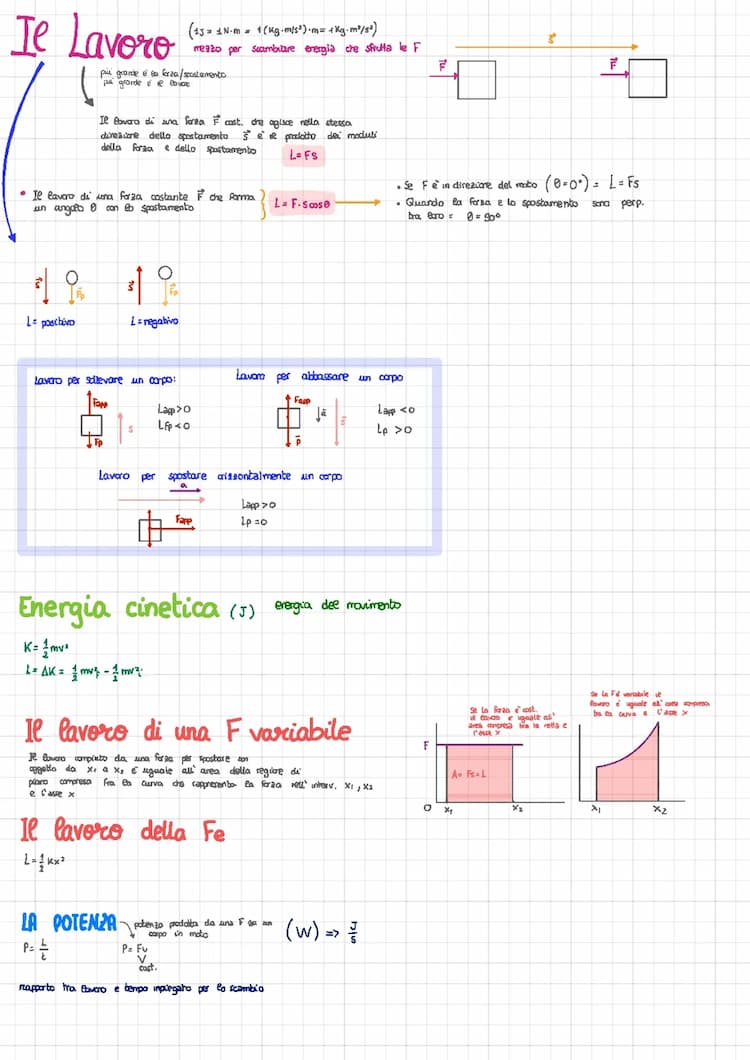 Il Lavoro
(1J = 1N·m = 1(Kg·m/s²)·m = 1Kg·m²/s²)
mezzo per scambiare energia che sfrutta le F
più grande è la forza/spostamento
più grande è il lavoro
Il lavoro di una forza F⃗ cost. che agisce nella stessa
direzione dello spostamento s⃗ è il prodotto dei moduli
della forza e dello spostamento
L=Fs
s⃗
F⃗
F⃗
• Il lavoro di una forza costante F⃗ che forma
un angolo θ con lo spostamento
L = F·scosθ
• Se F è in direzione del moto (θ=0°) = L=Fs
• Quando la forza e lo spostamento sono perp.
tra loro = θ=90°
s⃗
Fp
s⃗
Fp
L= positivo
L=negativo
Lavoro per sollevare un corpo:
Fapp
s
Fp
Lapp>0
LFp<0
Lavoro per abbassare un corpo
Fapp
P⃗
Lapp <0
Lp >0
Lavoro per spostare orizzontalmente un corpo
Fapp
Lapp>0
Lp=0
Energia cinetica (J)
energia del movimento
K= ½mv²
L= ΔK = ½mv²f - ½mv²i
Il lavoro di una F variabile
Il lavoro compiuto da una forza per spostare un
oggetto da x₁ a x₂ è uguale all'area della regione di
piano compresa fra la curva che rappresenta la forza nell'interv. x₁, x₂
e l'asse x
Se la forza è cost.
il lavoro è uguale all'
area compresa tra la retta e
l'asse x
F
A= Fs=L
O
x₁
x₂
Se la F è variabile il
lavoro è uguale all'area compresa
tra la curva e l'asse x
x₁
x₂
Il lavoro della Fe
L=½Kx²
LA POTENZA
potenza prodotta da una F su un
corpo in moto
(W) => J/s
P= L/t
P= Fv
cost.
rapporto tra lavoro e tempo impiegato per lo scambio